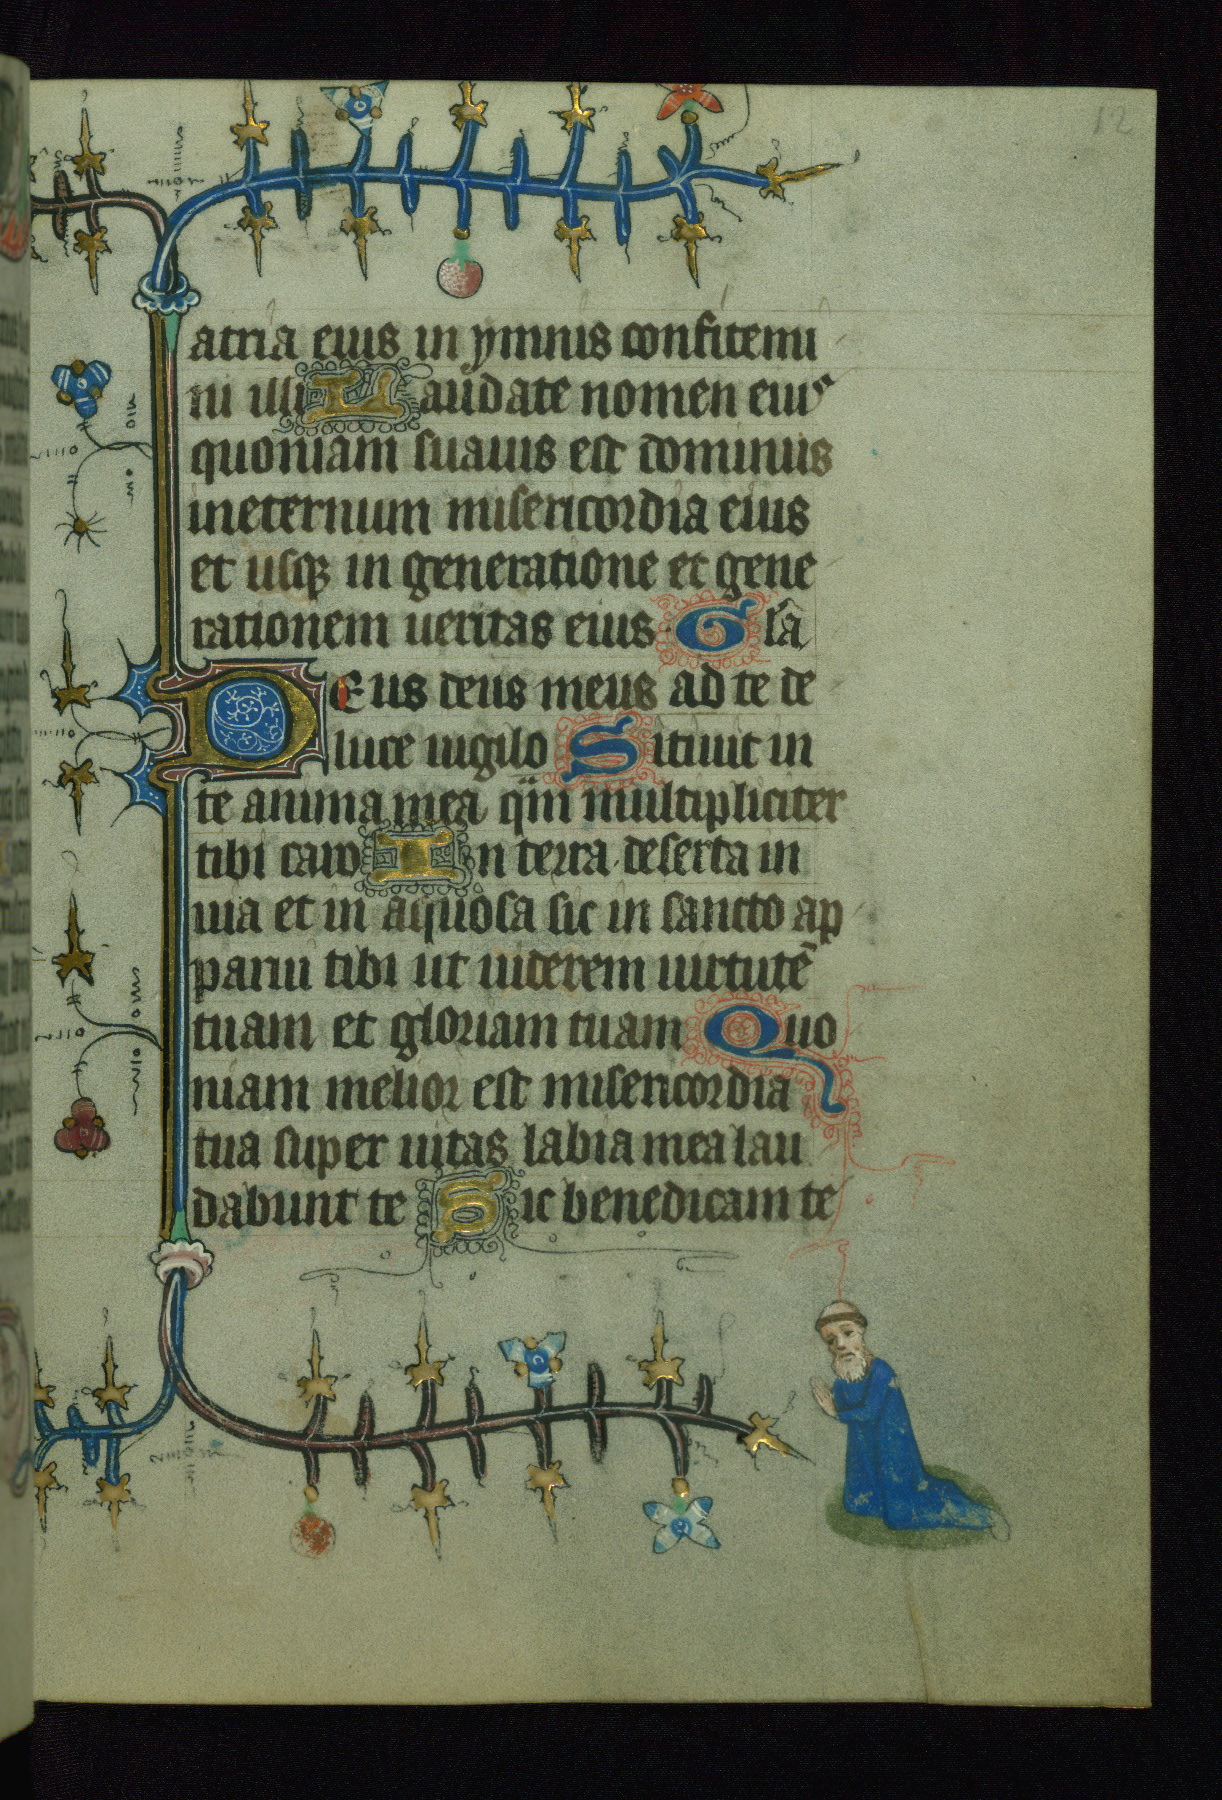 12
atria eius in ymnis confitemi
ni illi Laudate nomen eius
quoniam suauis est dominus
ineternum misericordia eius
et usqꝫ in generatione et gene
rationem ueritas eius Glã
Deus deus meus ad te de
luce uigilo Sitiuit in
te anima mea qm̃ multipliciter
tibi caro In terra deserta in
uia et in aquosa sic in sancto ap
parui tibi ut uiderem uirtutẽ
tuam et gloriam tuam Quo
niam melior est misericordia
tua super uitas labia mea lau
dabunt te Sic benedicam te